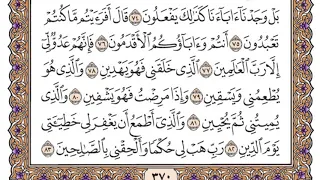 بَلْ وَجَدْنَآ ءَابَآءَنَا كَذَٰلِكَ يَفْعَلُونَ ٧٤ قَالَ أَفَرَءَيْتُم مَّا كُنتُمْ
تَعْبُدُونَ ٧٥ أَنتُمْ وَءَابَآؤُكُمُ ٱلْأَقْدَمُونَ ٧٦ فَإِنَّهُمْ عَدُوٌّ لِّىٓ
إِلَّا رَبَّ ٱلْعَٰلَمِينَ ٧٧ ٱلَّذِى خَلَقَنِى فَهُوَ يَهْدِينِ ٧٨ وَٱلَّذِى هُوَ
يُطْعِمُنِى وَيَسْقِينِ ٧٩ وَإِذَا مَرِضْتُ فَهُوَ يَشْفِينِ ٨٠ وَٱلَّذِى
يُمِيتُنِى ثُمَّ يُحْيِينِ ٨١ وَٱلَّذِىٓ أَطْمَعُ أَن يَغْفِرَ لِى خَطِيٓـَٔتِى
يَوْمَ ٱلدِّينِ ٨٢ رَبِّ هَبْ لِى حُكْمًا وَأَلْحِقْنِى بِٱلصَّٰلِحِينَ ٨٣
٣٧٠